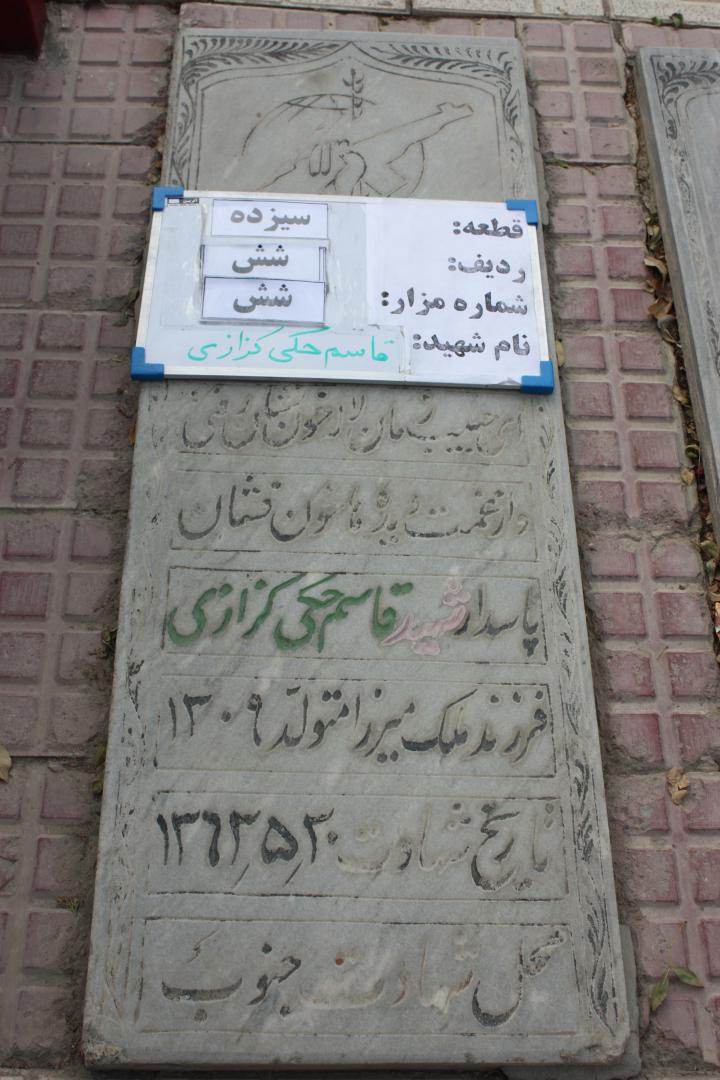 قطعه: سیزده
ردیف: شش
شماره مزار: شش
نام شهید: قاسم حکی کزازی
ای حبیب
از غمت دیده ها خون فشان
پاسدار شهید قاسم حکی کزازی
فرزند ملک میرزا متولد ۱۳۰۹
تاریخ شهادت ۱۳۶۳٫۵٫۳۰
محل شهادت جنوب